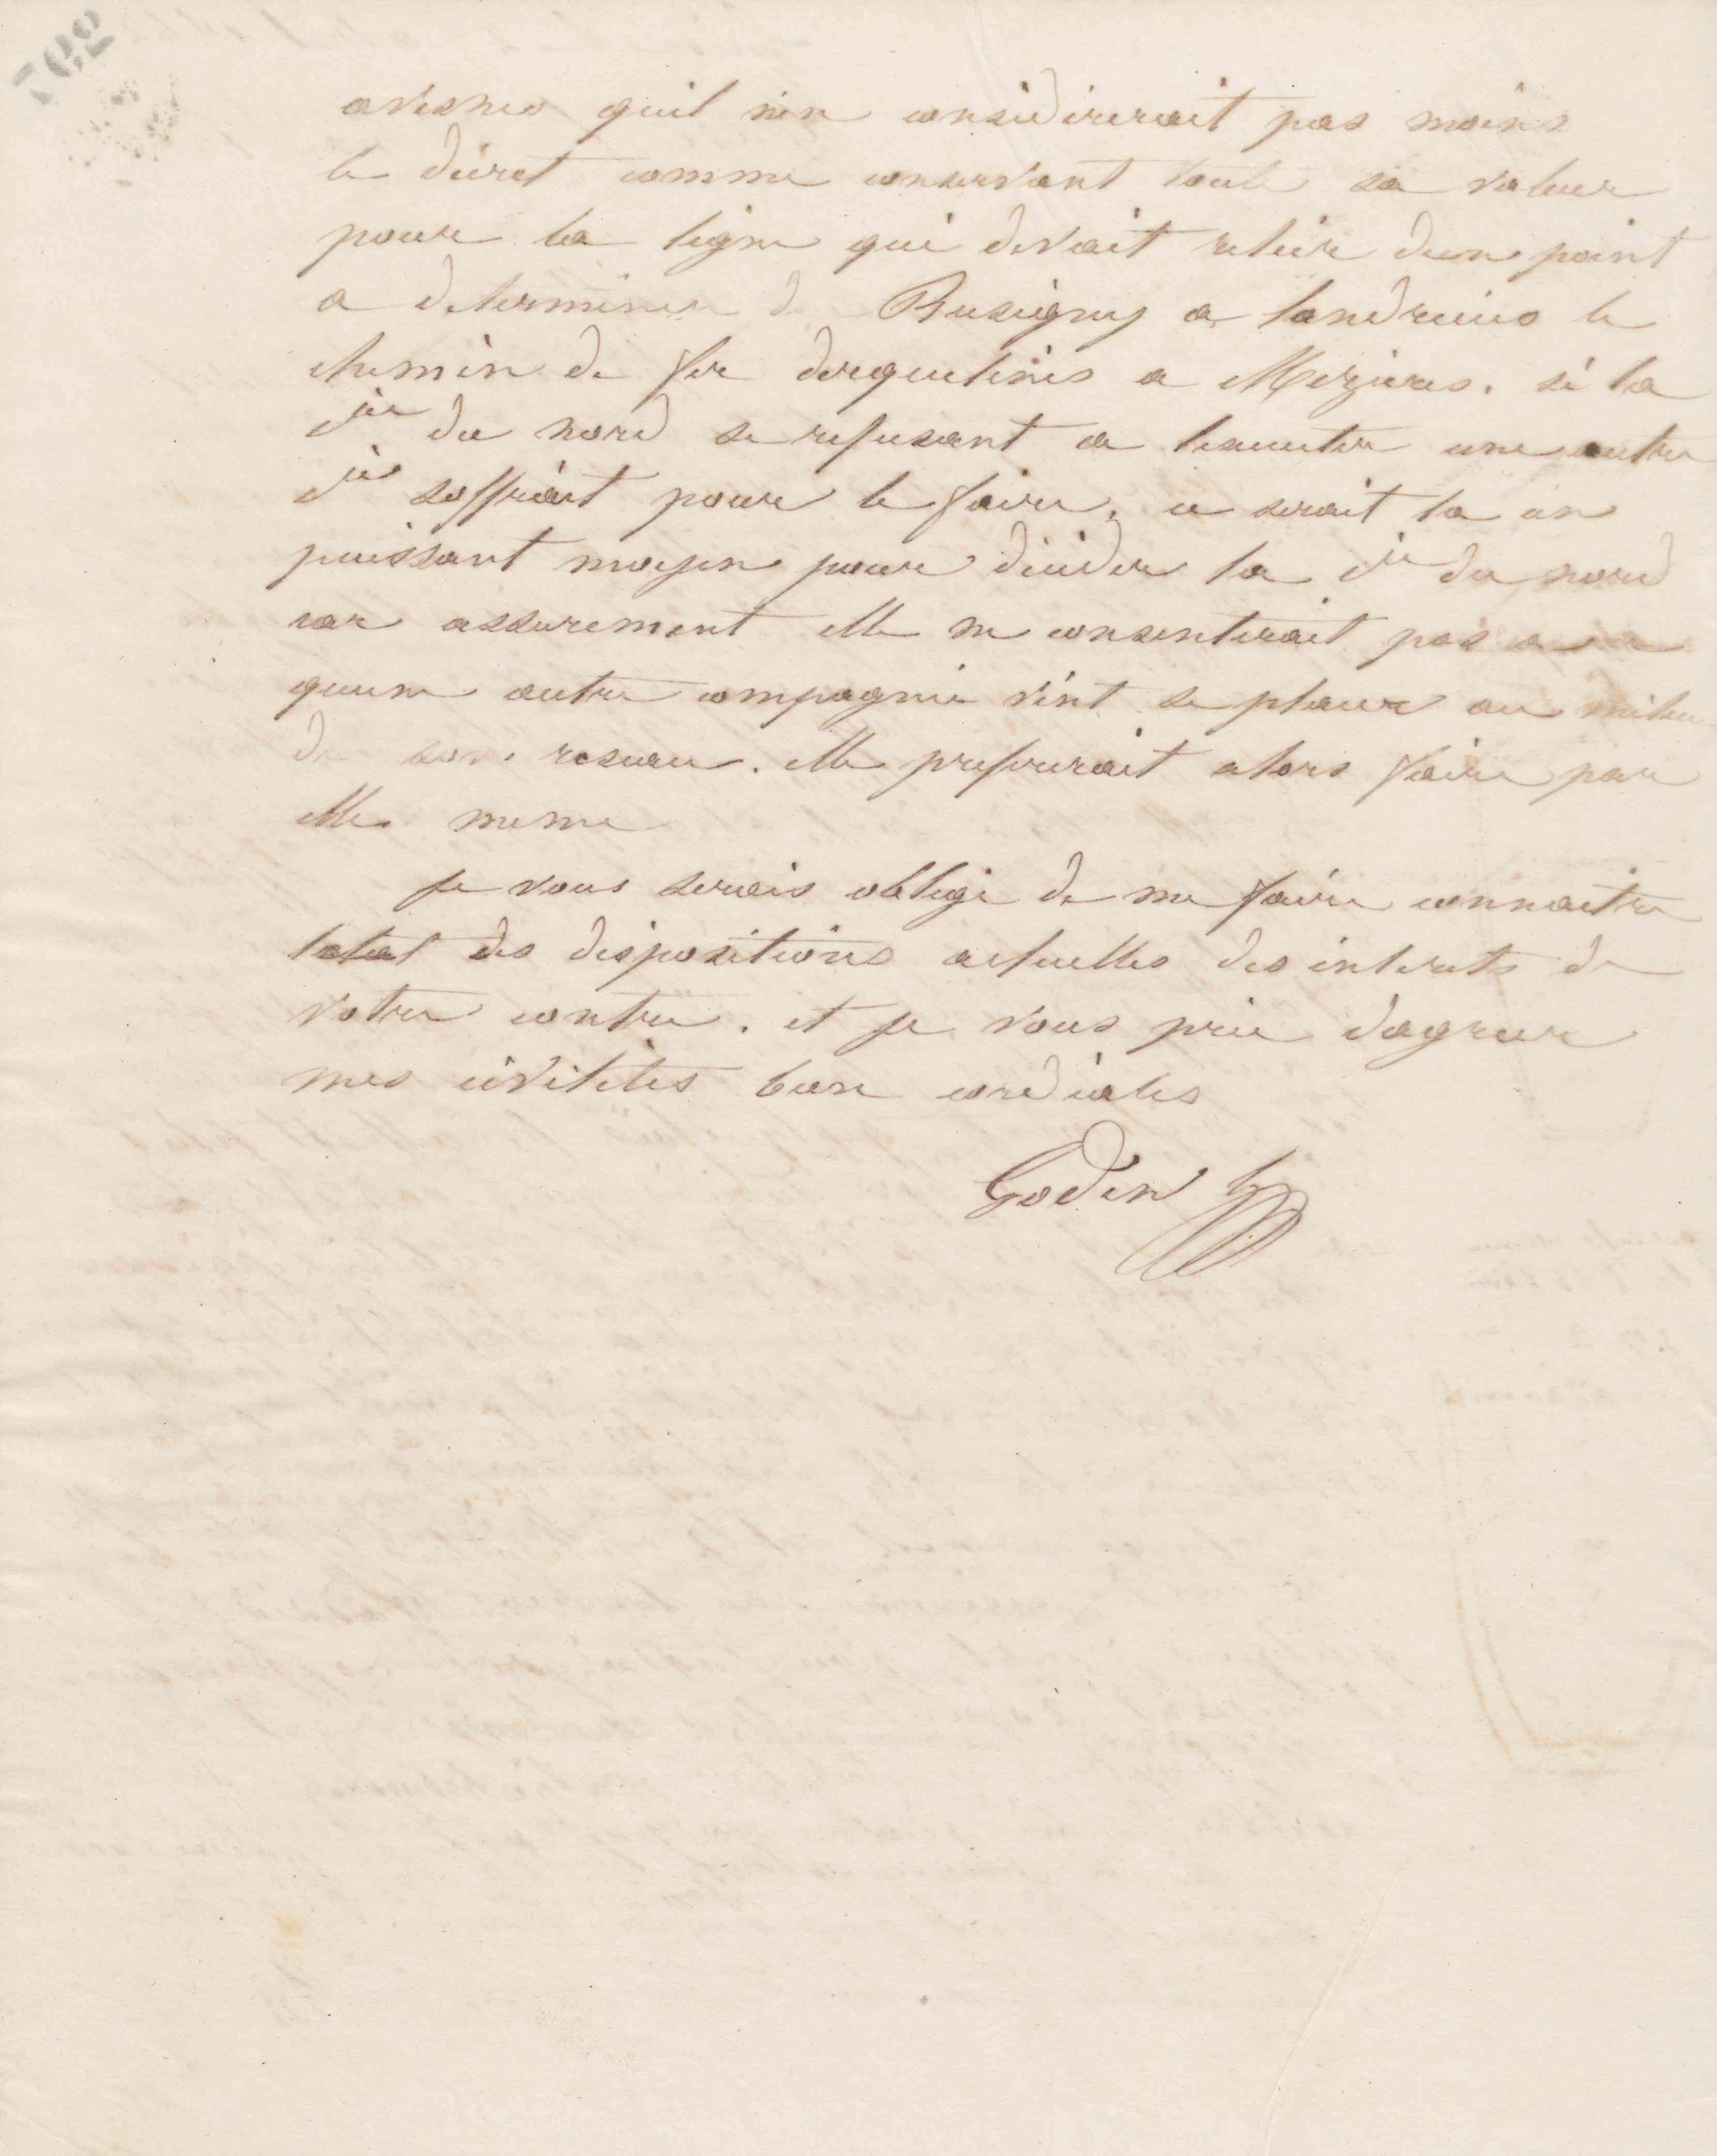 avesnes quil nen considererait pas moins
le décret comme conservant toute sa valeur
pour la ligne qui devait relier dun point
a determiner de Busigny a landrecies le
chemin de fer dorquelines a Mezieres. si la
Cie du nord se refusant a lexecuter une autre
Cie soffrait pour le faire, ce serait la un
puissant moyen pour décider la Cie du nord
car assurement elle ne consentirait pas a ce
quune autre compagnie vint se placer au milieu
de son reseau. elle prefererait alors faire par
elle meme
je vous serais obligé de me faire connaitre
letat des dispositions actuelles des interets de
votre contre. et je vous prie dagreer
mes civilités bien cordiales
Godin